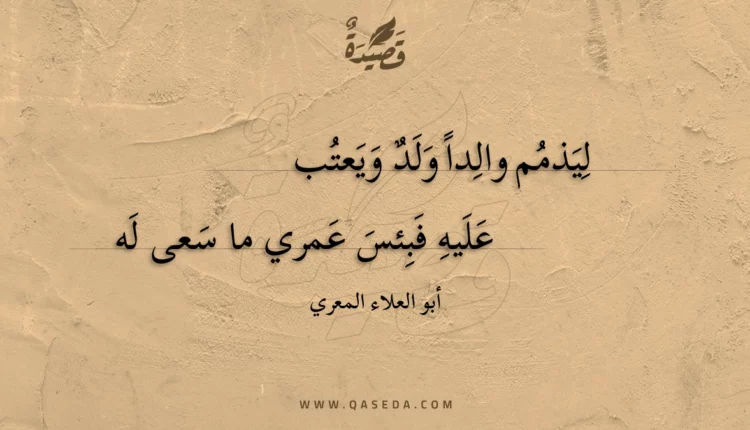 قَصِيْدَةٌ
لِيَذمُم والِداً وَلَدٌ وَيَعتُب
عَلَيهِ فَبِئسَ عَمري ما سَعى لَه
أبو العلاء المعري
WWW.QASEDA.COM